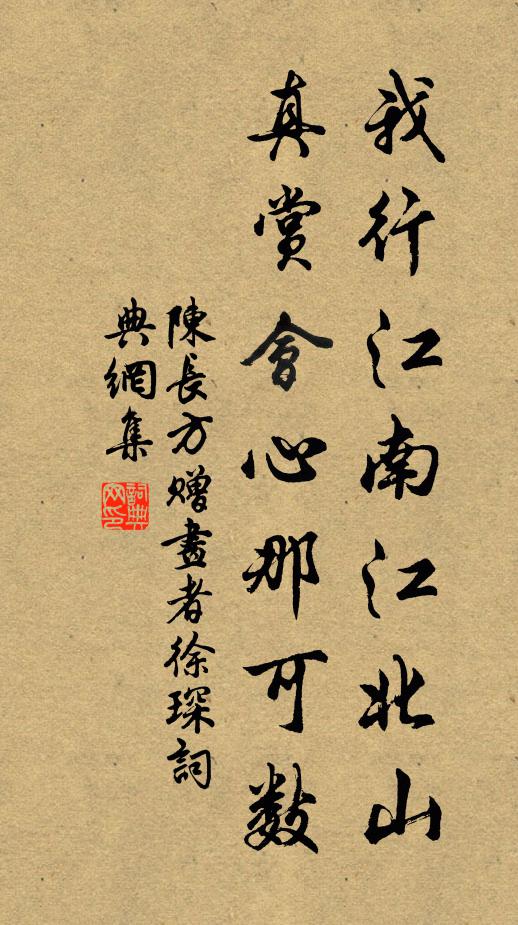 我行江南江北山
真賞會心那可數
陳長方贈畫者徐琛詞
典網集
詞典
网印